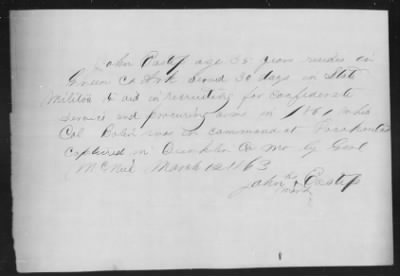 John Eastep age 35 years resides in
Green Co Ark served 30 days in State
Militia to aid in recruiting for Confederate
service and procuring arms in 1861 when
Col Bolin was in command at Pocahontas
captured in Dunklin Co Mo by Genl
McNeil March 12 1863
his
John x Eastep
mark